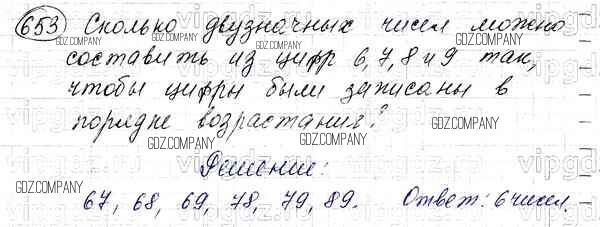 653 Сколько двузначных чисел можно
составить из цифр 6, 7, 8 и 9 так,
чтобы цифры были записаны в
порядке возрастания?
Решение:
67, 68, 69, 78, 79, 89. Ответ: 6 чисел.
GDZ.COMPANY
GDZ.COMPANY
GDZ.COMPANY
GDZ.COMPANY
GDZ.COMPANY
GDZ.COMPANY
GDZ.COMPANY